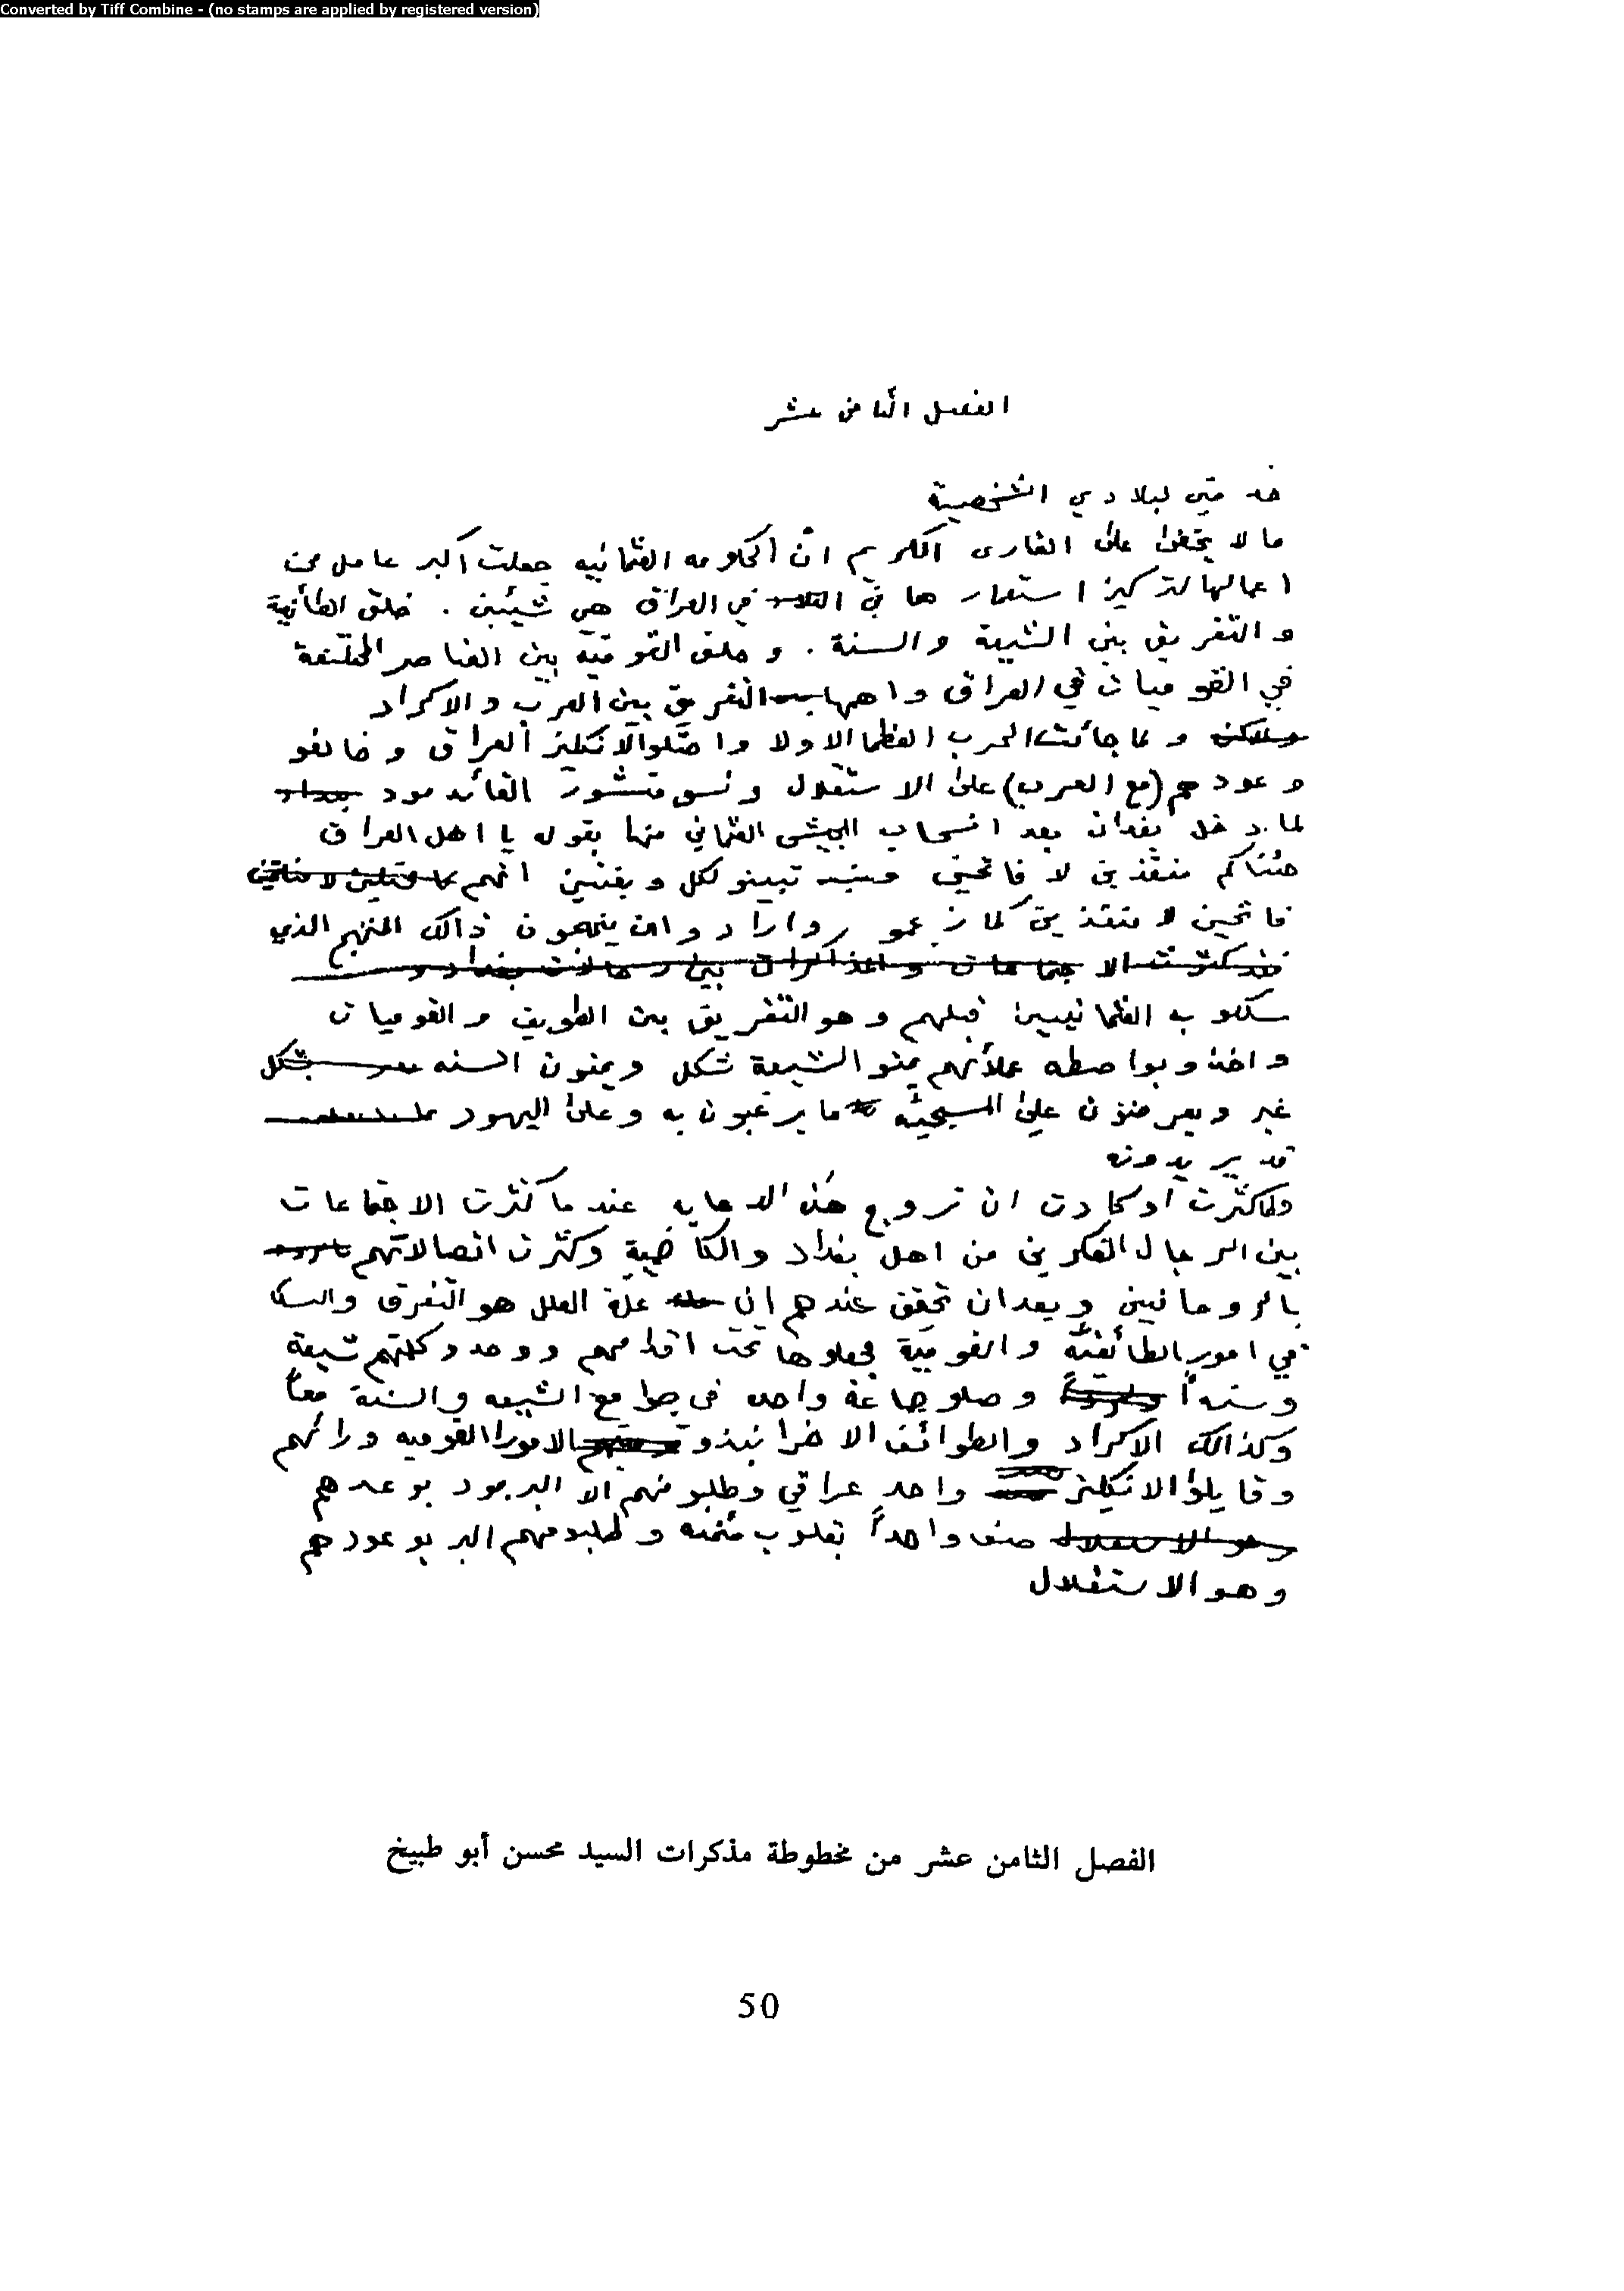 Converted by Tiff Combine - (no stamps are applied by registered version)
الفصل الثامن عشر
خدمتي لبلادي الشخصية
ما لا يخفىٰ علىٰ القارى الكريم انّ الحكومه العثمانيه جعلت أكبر عامل من
اعمالها لتركيز استعمارها في العراق هي شيئين . خلق الطأفية
و التفريق بين الشيعة والسنة . و خلق القوميّة بين العناصر المختلفة
في القوميات في العراق واهمها التفريق بين العرب والاكراد
و لما جائت الحرب العظما الاولا واحتلو الانكليز العراق وخالفو
وعودهم (مع العرب) علىٰ الاستقلال ونسو منشور القأيد مود
لما دخل بغداد بعد انسحاب الجيش العثماني منها بقوله يا اهل العراق
جئناكم منقذين لا فاتحين تبينو لكل ويقنين انهم
فاتحين لا منقذين كما زعمو وارادو ان ينهجون ذالك المنهج الذي
سلكو به العثمانيين قبلهم وهو التفريق بين الطويف والقوميات
واخذو بواصطه عملأئهم يمنو الشيعة شكل ويمنون السنه بشكل
غير ويعرضون علىٰ المسيحيّه ما يرغبون به وعلىٰ اليهود
قد يريدونه
ولما كثرت او كادت ان تروج هذه الدعايه عند ما كثرت الاجتماعات
بين الرجال المفكرين من اهل بغداد والكاضمية وكثرت اتصالاتهم
بالروحانيين وبعد ان تحقق عندهم ان علة العلل هو التفرق
في امور الطأفيّة والقوميّة فجعلوها تحت اقدامهم ووحدو كلمتهم شيعة
وسنهاً وصلو جماعة واحده في جوامع الشيعه والسنة معاً
وكذالك الاكراد والطوائف الاخرا نبذو الامورا القوميه ورائهم
وقابلو الانكليز واحد عراقي وطلبو منهم الا البر بوعدهم
صف واحداً بقلوب وطلبو منهم البر بوعودهم
وهو الاستقلال
الفصل الثامن عشر من مخطوطة مذكرات السيد محسن أبو طبيخ
50